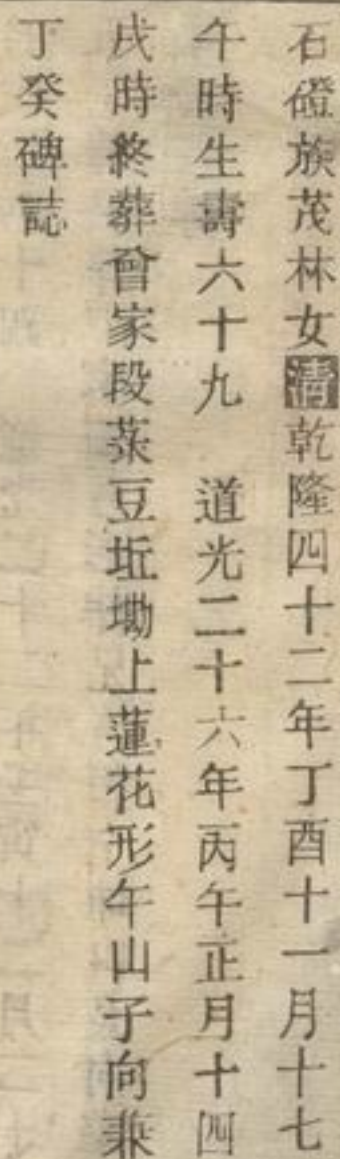 石磴族茂林女清乾隆四十二年丁酉十一月十七
午時生壽六十九　道光二十六年丙午正月十四
戌時終葬曾家段菉豆坵墈上蓮花形午山子向兼
丁癸碑誌